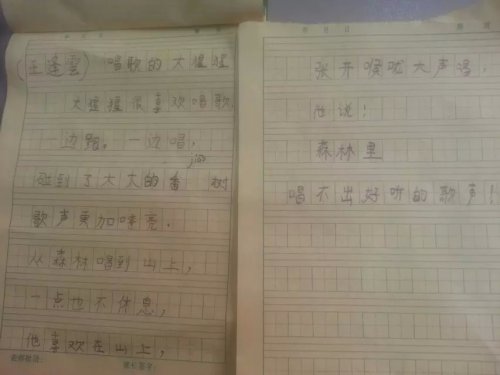 (王逢雲) 唱歌的大猩猩
大猩猩很喜欢唱歌,
一边跑,一边唱,
jiāo
碰到了大大的香 树
歌声更加嘹亮.
从森林唱到山上,
一点也不休息,
他喜欢在山上,
张开喉咙大声唱.
他说:
森林里
唱不出好听的歌声!